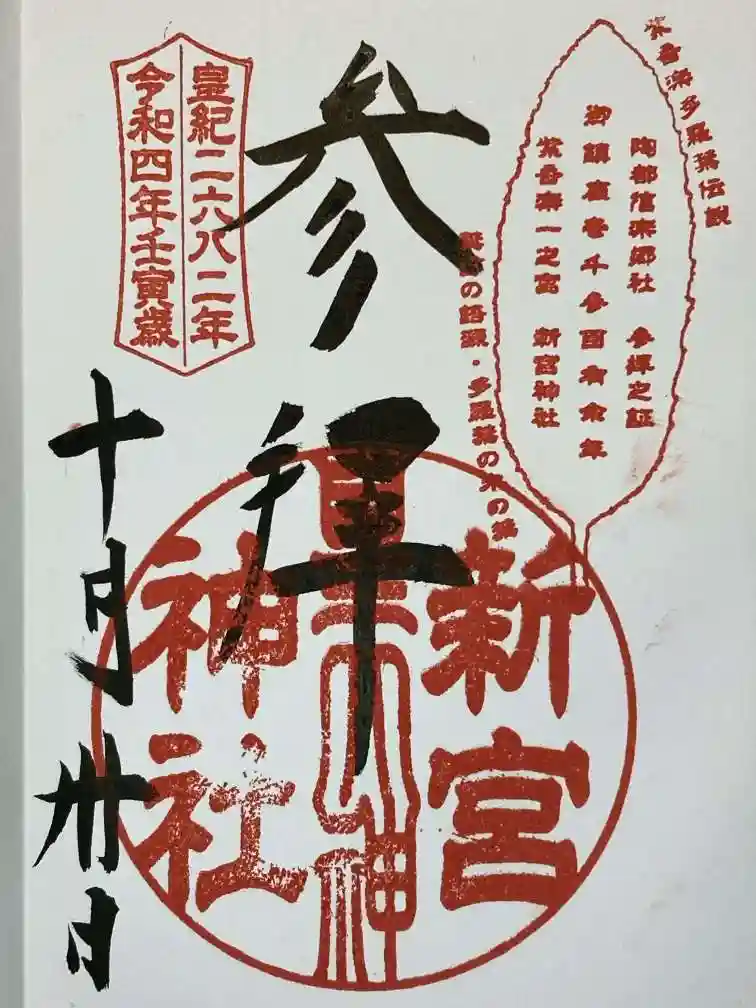 紫香楽多羅葉伝説
陶都信楽郷社 参拝之証
御鎮座壱千参百有余年
紫香楽一之宮 新宮神社
葉書の語源・多羅葉の木の葉
参拝
新宮
神社
皇紀二六八二年
令和四年壬寅歳
十月卅日